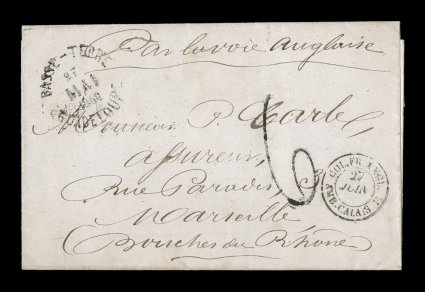 Par la voie Anglaise
BASSE-TERRE
27
MAI
GUADELOUPE
Monsieur P. Carle
assureur,
Rue Paradis,
Marseille
Bouches du Rhône
6
COL. FR. ANGL.
27
JUIN
AMB. CALAIS